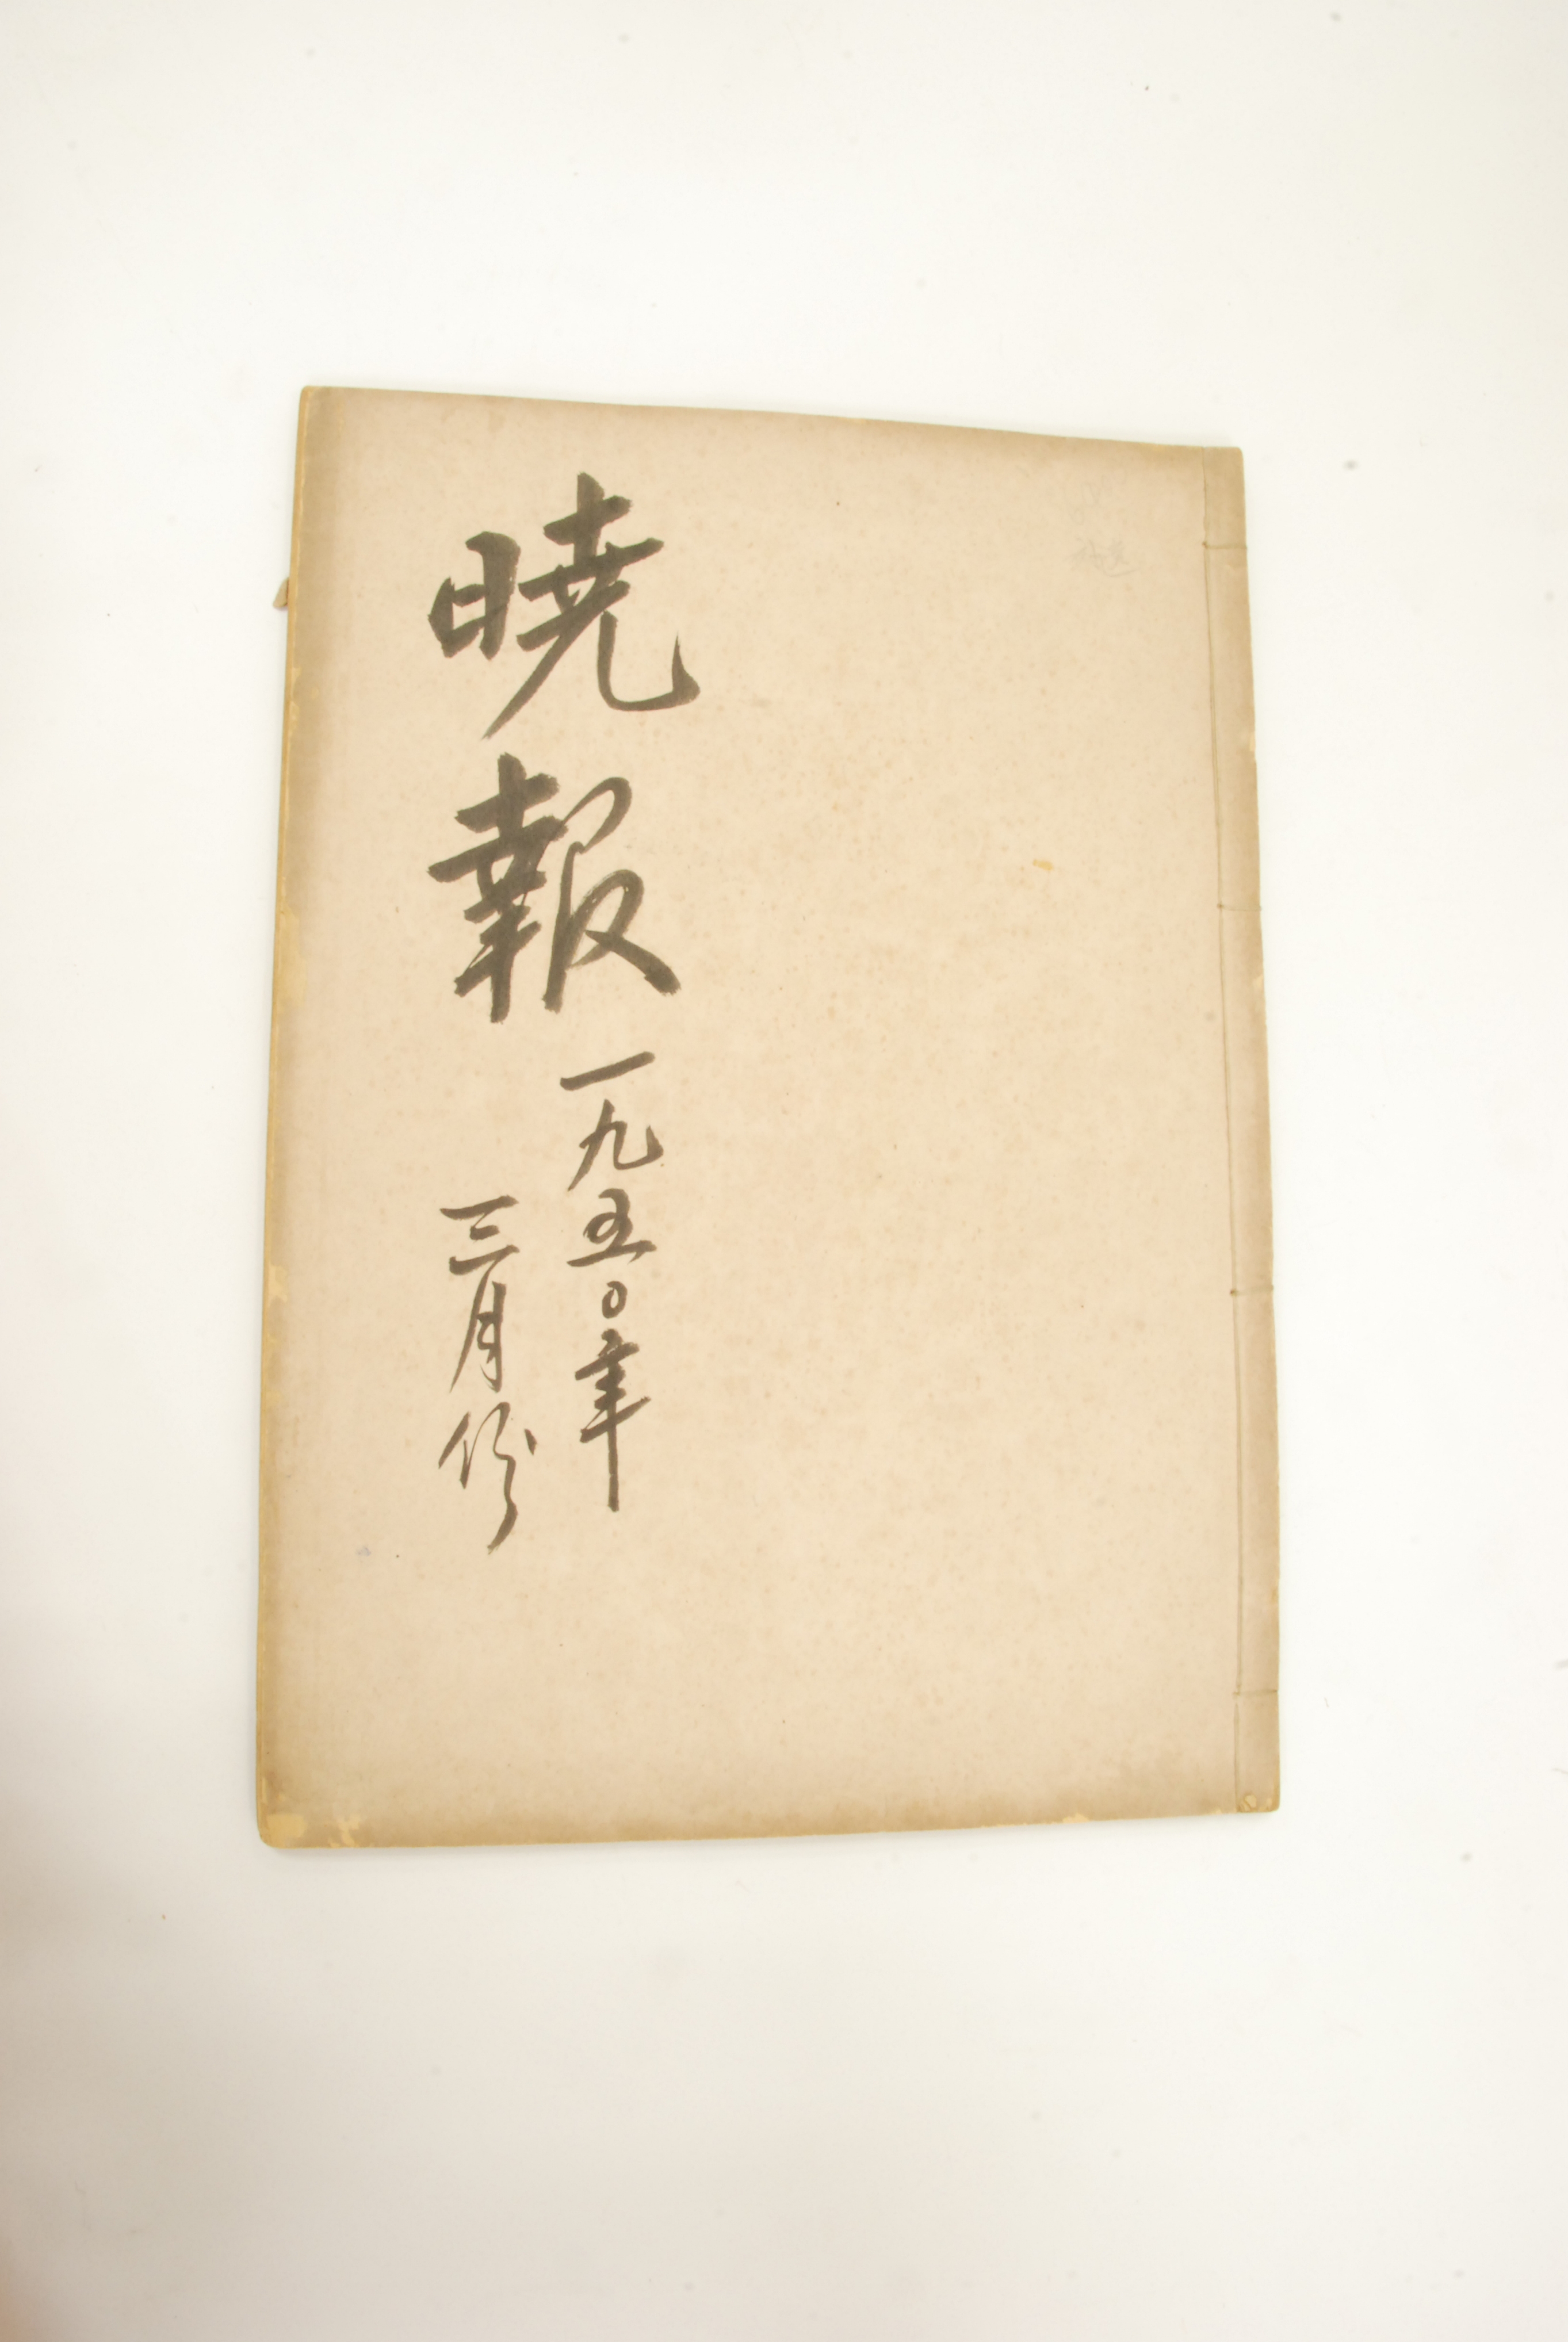 暁報
一九五〇年
三月份